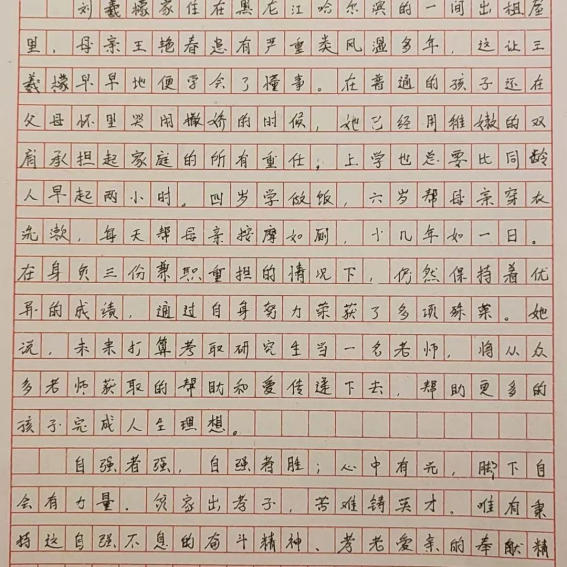 刘羲檬家住在黑龙江哈尔滨的一间出租屋
里，母亲王艳春患有严重类风湿多年，这让王
羲檬早早地便学会了懂事。在普通的孩子还在
父母怀里哭闹撒娇的时候，她已经用稚嫩的双
肩承担起家庭的所有重任；上学也总要比同龄
人早起两小时。四岁学做饭，六岁帮母亲穿衣
洗漱，每天帮母亲按摩如厕，十几年如一日。
在身负三份兼职重担的情况下，仍然保持着优
异的成绩，通过自身努力荣获了多项殊荣。她
说，未来打算考取研究生当一名老师，将从众
多老师获取的帮助和爱传递下去，帮助更多的
孩子完成人生理想。
自强者强，自强者胜；心中有光，脚下自
会有力量。贫家出孝子，苦难铸英才。唯有秉
持这自强不息的奋斗精神、孝老爱亲的奉献精